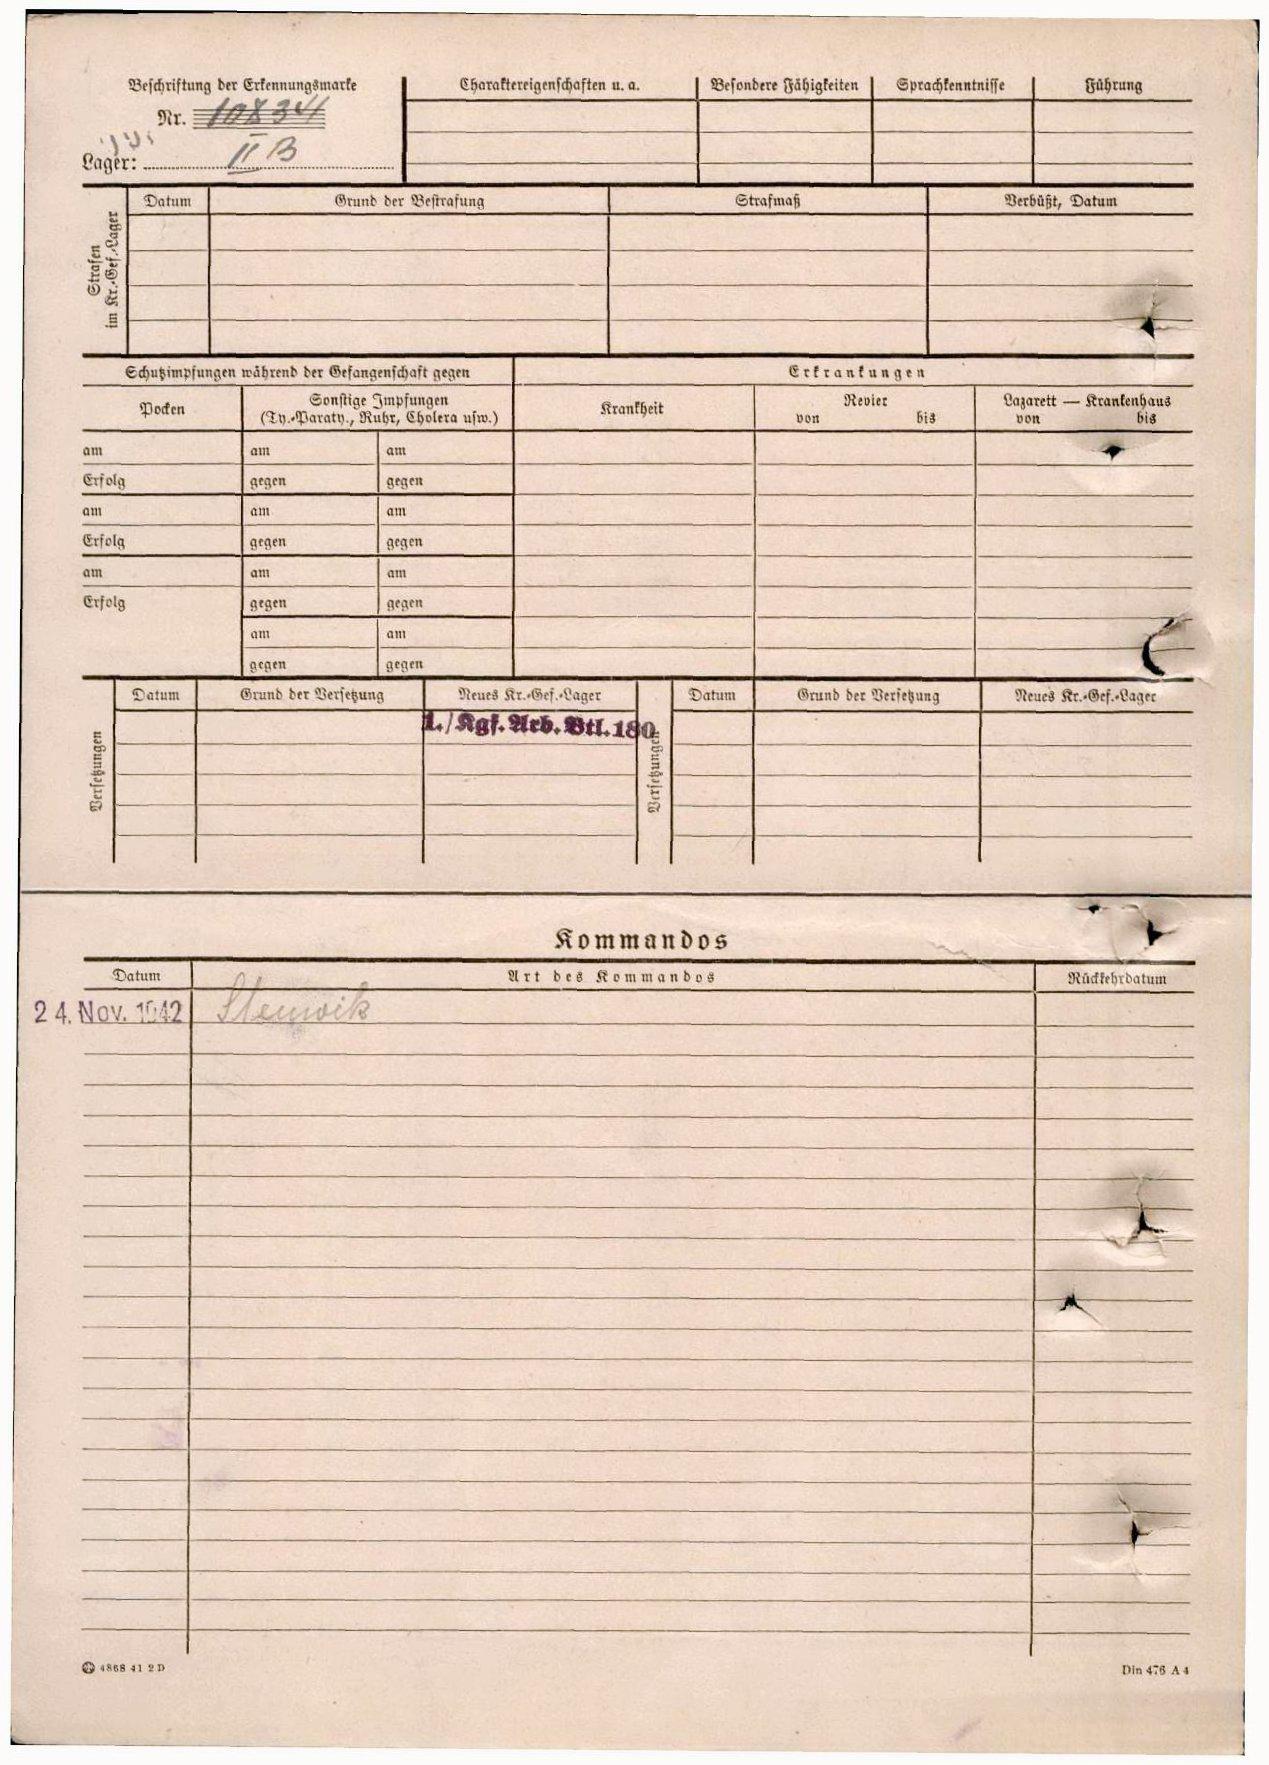 Beschriftung der Erkennungsmarke
Nr. 10834
Lager: II B
Charaktereigenschaften u. a.
Besondere Fähigkeiten
Sprachkenntnisse
Führung
Strafen
im Kr.-Gef.-Lager
Datum
Grund der Bestrafung
Strafmaß
Verbüßt, Datum
Schutzimpfungen während der Gefangenschaft gegen
Erkrankungen
Pocken
Sonstige Impfungen
(Ty.-Paraty., Ruhr, Cholera usw.)
Krankheit
Revier
von bis
Lazarett — Krankenhaus
von bis
am am am
Erfolg gegen gegen
am am am
Erfolg gegen gegen
am am am
Erfolg gegen gegen
am am
gegen gegen
Versetzungen
Datum
Grund der Versetzung
Neues Kr.-Gef.-Lager
1./Kgf. Arb. Btl. 180
Versetzungen
Datum
Grund der Versetzung
Neues Kr.-Gef.-Lager
Kommandos
Datum Art des Kommandos Rückkehrdatum
24. Nov. 1942
4868 41 2 D
Din 476 A 4